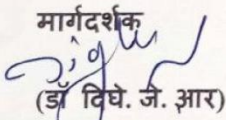 मार्गदर्शक
(डॉ दिघे. जे. आर)